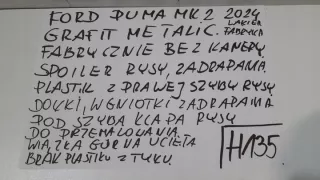 FORD PUMA MK2 2024
GRAFIT METALIC. LAKIER FABRYKA
FABRYCZNIE BEZ KAMERY
SPOILER RYSY, ZADRAPANIA
PLASTIK Z PRAWEJ SZYBY RYSY
DOŁKI, WGNIOTKI ZADRAPANIA
POD SZYBA KLAPA RYSY
DO PRZEMALOWANIA
WIĄZKA GÓRNA UCIĘTA
BRAK PLASTIKU Z TYŁU.
H135